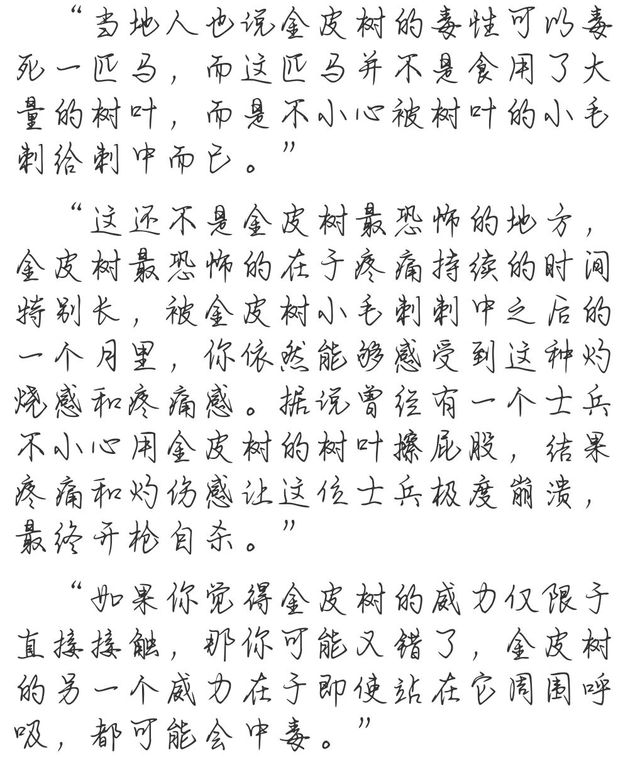 “当地人也说金皮树的毒性可以毒
死一匹马，而这匹马并不是食用了大
量的树叶，而是不小心被树叶的小毛
刺给刺中而已。”
“这还不是金皮树最恐怖的地方，
金皮树最恐怖的在于疼痛持续的时间
特别长，被金皮树小毛刺刺中之后的
一个月里，你依然能够感受到这种灼
烧感和疼痛感。据说曾经有一个士兵
不小心用金皮树的树叶擦屁股，结果
疼痛和灼伤感让这位士兵极度崩溃，
最终开枪自杀。”
“如果你觉得金皮树的威力仅限于
直接接触，那你可能又错了，金皮树
的另一个威力在于即使站在它周围呼
吸，都可能会中毒。”